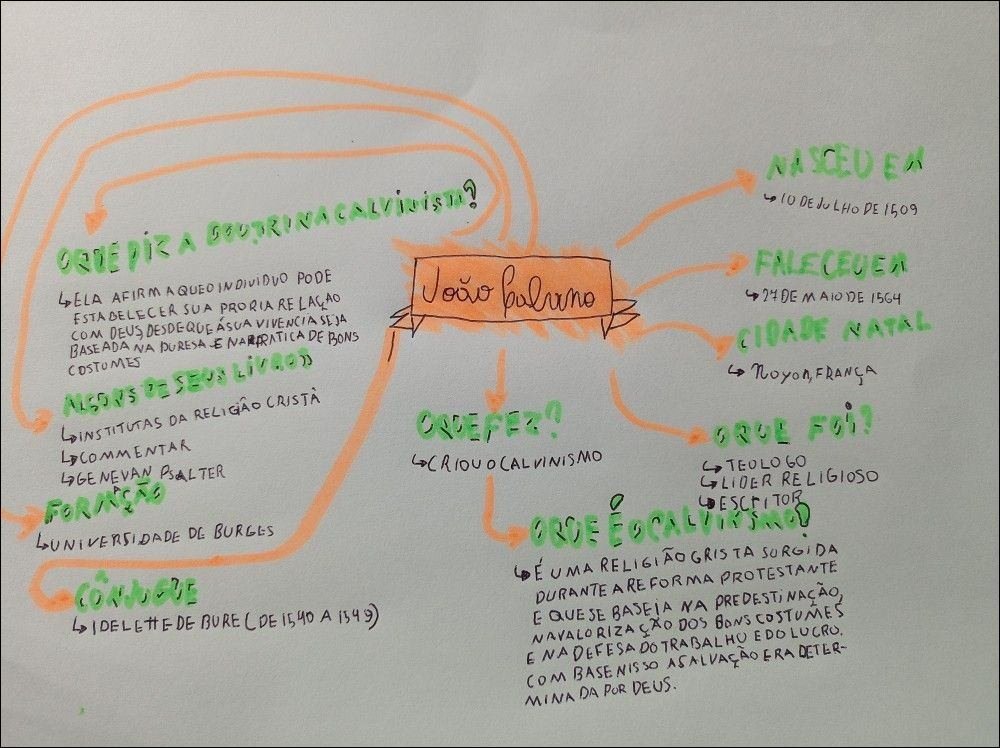 João Calvino
NASCEU EM
↳ 10 DE JULHO DE 1509
FALECEU EM
↳ 27 DE MAIO DE 1564
CIDADE NATAL
↳ NOYON, FRANÇA
O QUE FOI?
↳ TEOLOGO
↳ LIDER RELIGIOSO
↳ ESCRITOR
O QUE FEZ?
↳ CRIOU O CALVINISMO
O QUE É O CALVINISMO?
↳ É UMA RELIGIÃO CRISTA SURGIDA
DURANTE A REFORMA PROTESTANTE
E QUE SE BASEIA NA PREDESTINAÇÃO,
NA VALORIZAÇÃO DOS BONS COSTUMES
E NA DEFESA DO TRABALHO E DO LUCRO.
COM BASE NISSO A SALVAÇÃO ERA DETER-
MINADA POR DEUS.
O QUE DIZ A DOUTRINA CALVINISTA?
↳ ELA AFIRMA QUE O INDIVIDUO PODE
ESTABELECER SUA PROPRIA RELAÇÃO
COM DEUS, DESDE QUE A SUA VIVENCIA SEJA
BASEADA NA PURESA E NA PRATICA DE BONS
COSTUMES
ALGUNS DE SEUS LIVROS
↳ INSTITUTAS DA RELIGIÃO CRISTÃ
↳ COMMENTAR
↳ GENEVAN PSALTER
FORMAÇÃO
↳ UNIVERSIDADE DE BURGES
CÔNJUGUE
↳ IDELETTE DE BURE (DE 1540 A 1549)